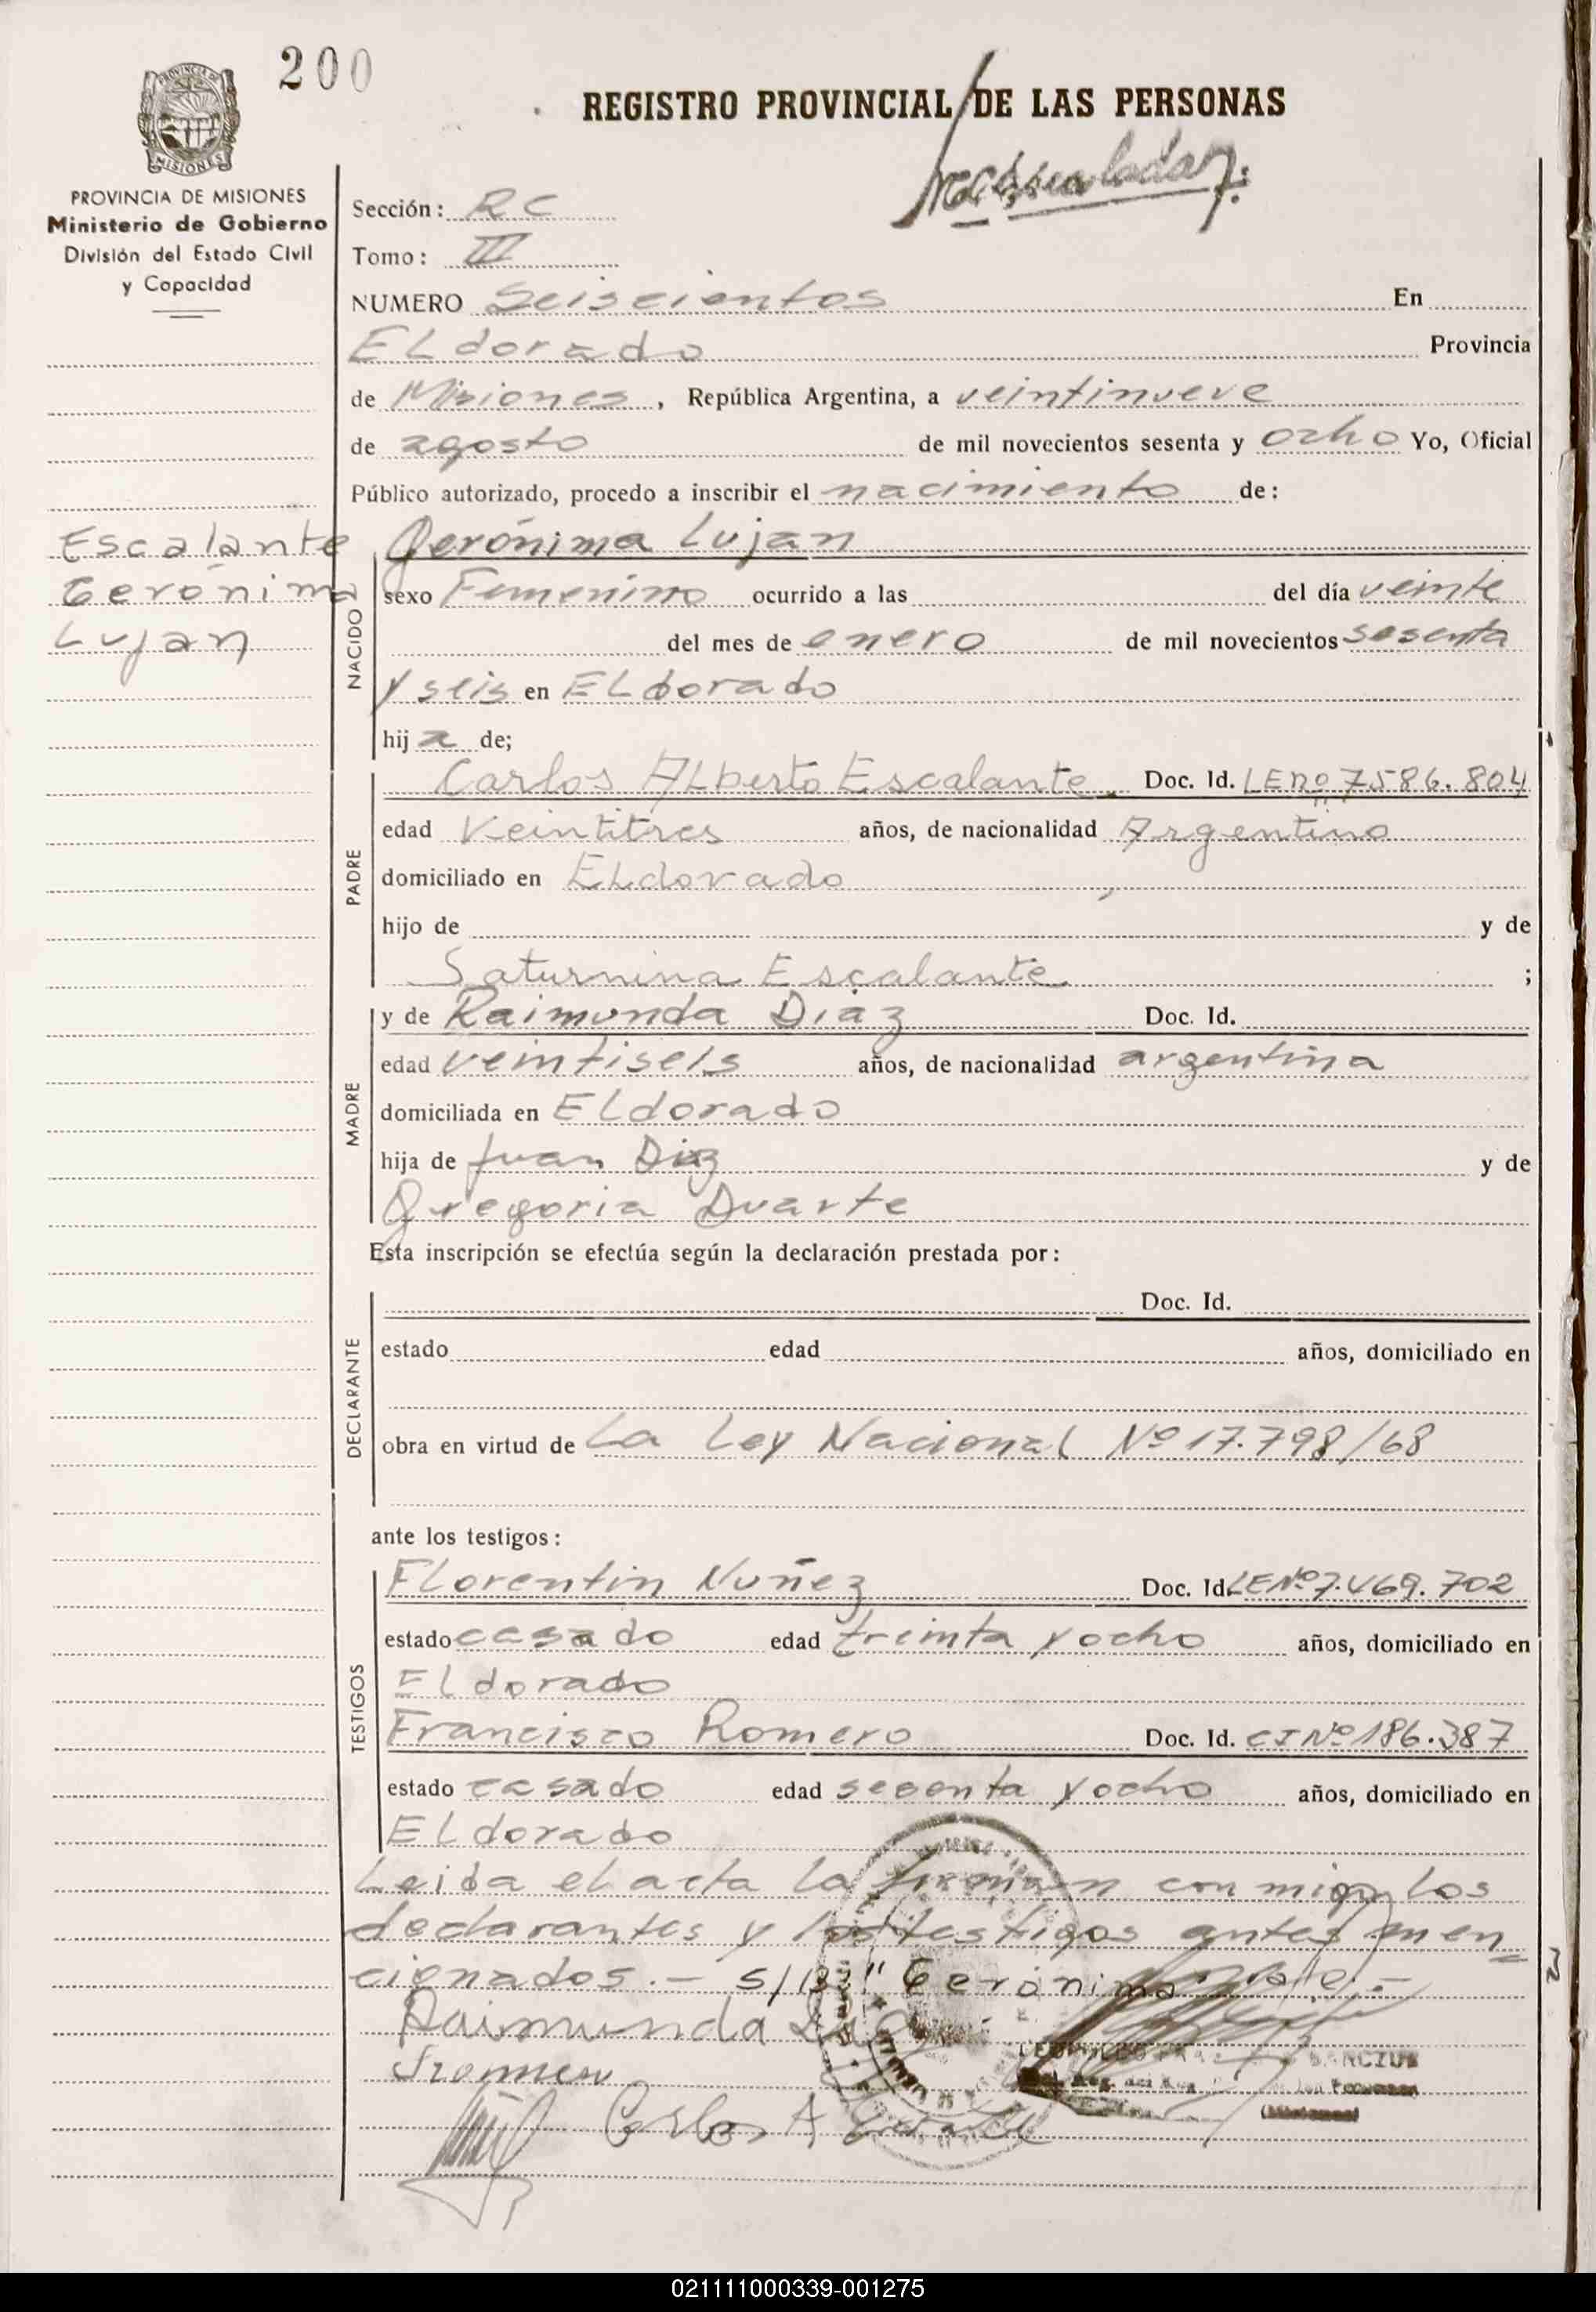 200
REGISTRO PROVINCIAL DE LAS PERSONAS
MISIONES
PROVINCIA DE MISIONES
Ministerio de Gobierno
División del Estado Civil
y Capacidad
Sección: RC
Tomo: III
NUMERO Seiscientos En
ELdorado Provincia
de Misiones, República Argentina, a veintinueve
de agosto de mil novecientos sesenta y ocho Yo, Oficial
Público autorizado, procedo a inscribir el nacimiento de:
Escalante
Gerónima
Lujan
NACIDO
Gerónima Lujan
sexo Femenino ocurrido a las del día veinte
del mes de enero de mil novecientos sesenta
y seis en ELdorado
hija de;
PADRE
Carlos ALberto Escalante Doc. Id. LE Nº 7586.804
edad Veintitres años, de nacionalidad Argentino
domiciliado en ELdorado
hijo de y de
Saturnina Escalante ;
MADRE
y de Raimunda Diaz Doc. Id.
edad veintiseis años, de nacionalidad argentina
domiciliada en ELdorado
hija de Juan Diaz y de
Gregoria Duarte
Esta inscripción se efectúa según la declaración prestada por:
DECLARANTE
Doc. Id.
estado edad años, domiciliado en
obra en virtud de La Ley Nacional Nº 17.798/68
ante los testigos:
TESTIGOS
FLorentin Nuñez Doc. Id. LE Nº 7.469.702
estado casado edad treinta y ocho años, domiciliado en
ELdorado
Francisco Romero Doc. Id. CI Nº 186.387
estado casado edad sesenta y ocho años, domiciliado en
ELdorado
Leida el acta la firman con migo, los
declarantes y los testigos antes men
cionados.- "Gerónima" vale.-
Raimunda Diaz
Carlos A Escalante
021111000339-001275